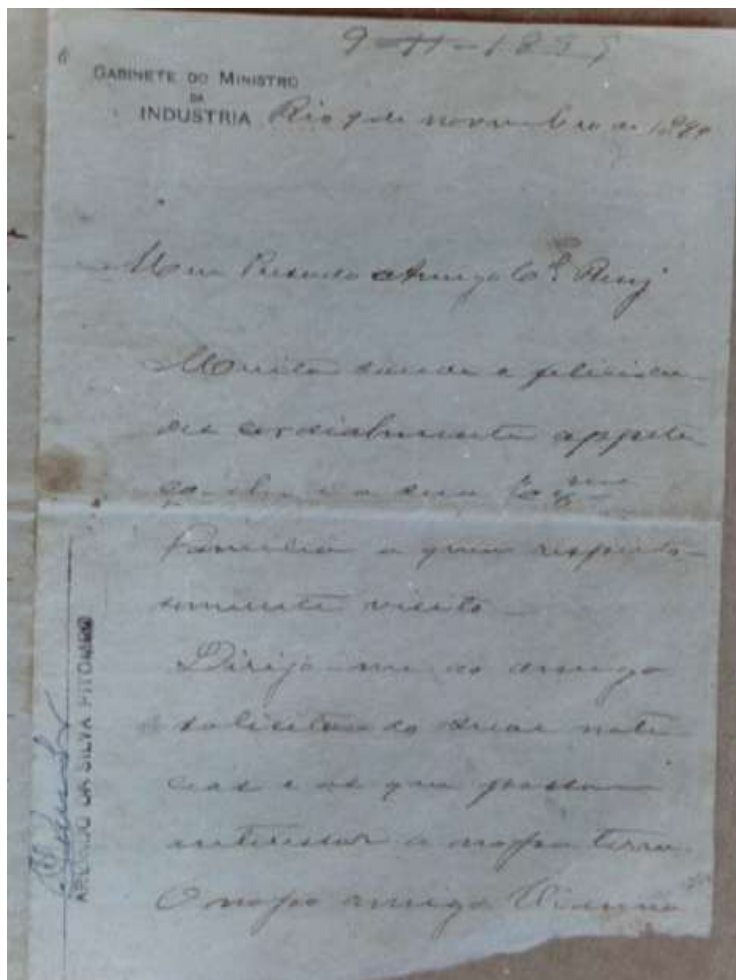 9-11-189
6
GABINETE DO MINISTRO
DA
INDUSTRIA Rio 9 de novembro de 189
Meu Presado Amigo C.el
Muita saude e felicida-
des cordialmente appete
ço-lhe e a sua Exma
Familia a quem respeito-
samente visito.
Dirijo-me ao amigo
solicitando suas noti
cias e as que possam
interessar a nossa terra.
O nosso amigo Vianna
DA SILVA PITOMBO